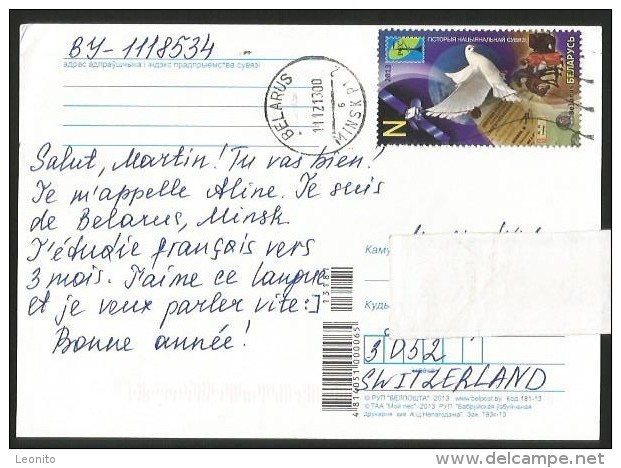 BY-1118534
адрас адпраўшчыка і індэкс прадпрыемства сувязі
BELARUS
111213 00
MINSK PI 2
9
2013
ГІСТОРЫЯ НАЦЫЯНАЛЬНАЙ СУВЯЗІ
БЕЛАРУСЬ
N
Salut, Martin! Tu vas bien!
Je m'appelle Aline. Je suis
de Belarus, Minsk.
J'étudie français vers
3 mois. J'aime ce langue
et je veux parler vite:]
Bonne année!
Каму
Куды
13181
4 814051 000065
3052
SWITZERLAND
© РУП "БЕЛПОШТА" 2013 www.belpost.by Код 181-13
© ТАА "Мой лес" 2013 РУП "Бабруйская ўзбуйненая
друкарня імя А.Ц.Непагодзіна". Зак. 193к-13
Leonito
delcampe.net